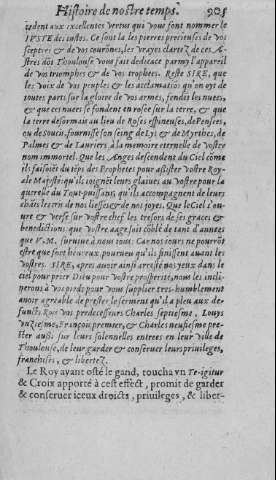 Histoire de nostre temps. 905
cedent aux excellentes vertus qui vous font nommer le
IVSTE des iustes. Ce sont là les pierres precieuses de vos
sceptres & de vos courõnes, les vrayes clartez de ces A-
stres dõt Thoulouse vous fait dedicace parmy l'appareil
de vos triomphes & de vos trophees. Reste SIRE, que
les voix de vos peuples & les acclamatiõs qu'on oyt de
toutes parts sur la gloire de vos armes, fendēt les nuees,
& que ces nuees se fondent en rosee sur la terre, & que
la terre desormais au lieu de Roses espineuses, de Pensees,
ou de Soucis, fournisse son seing de Lys & de Myrthes, de
Palmes & de Lauriers à la memoire eternelle de vostre
nom immortel. Que les Anges descendent du Ciel cõme
ils faisoiēt du tēps des Prophetes pour assister vostre Roy-
ale Majesté: qu'ils ioignēt leurs glaiues au vostre pour la
querelle du Tout-puissant, qu'ils accompagnent de leurs
nos liesses & de nos ioyes. Que le Ciel s'ou-
ure & verse sur vostre chef les tresors de ses graces &
benedictions: que vostre aage soit cõblé de tant d'annees
que V. M. suruiue à nous tous: Car nos iours ne pourrõt
estre que fort heureux pourueu qu'ils finissent auant les
vostres. SIRE, apres auoir ainsi arresté nos yeux dans le
ciel pour prier Dieu pour vostre prosperité, nous les incli-
nerons à vos pieds pour vous supplier tres-humblement
auoir agreable de prester le serment qu'il a pleu aux de-
functs Roys vos predecesseurs Charles septiesme, Louys
vnziesme, François premier, & Charles neufiesme pre-
ster aussi sur leurs solennelles entrees en leur ville de
Thoulouse, de leur garder & conseruer leurs priuileges,
franchises, & libertez.
Le Roy ayant osté le gand, toucha vn Te-igitur
& Croix apporté à cest effect, promit de garder
& conseruer iceux droicts, priuileges, & liber-